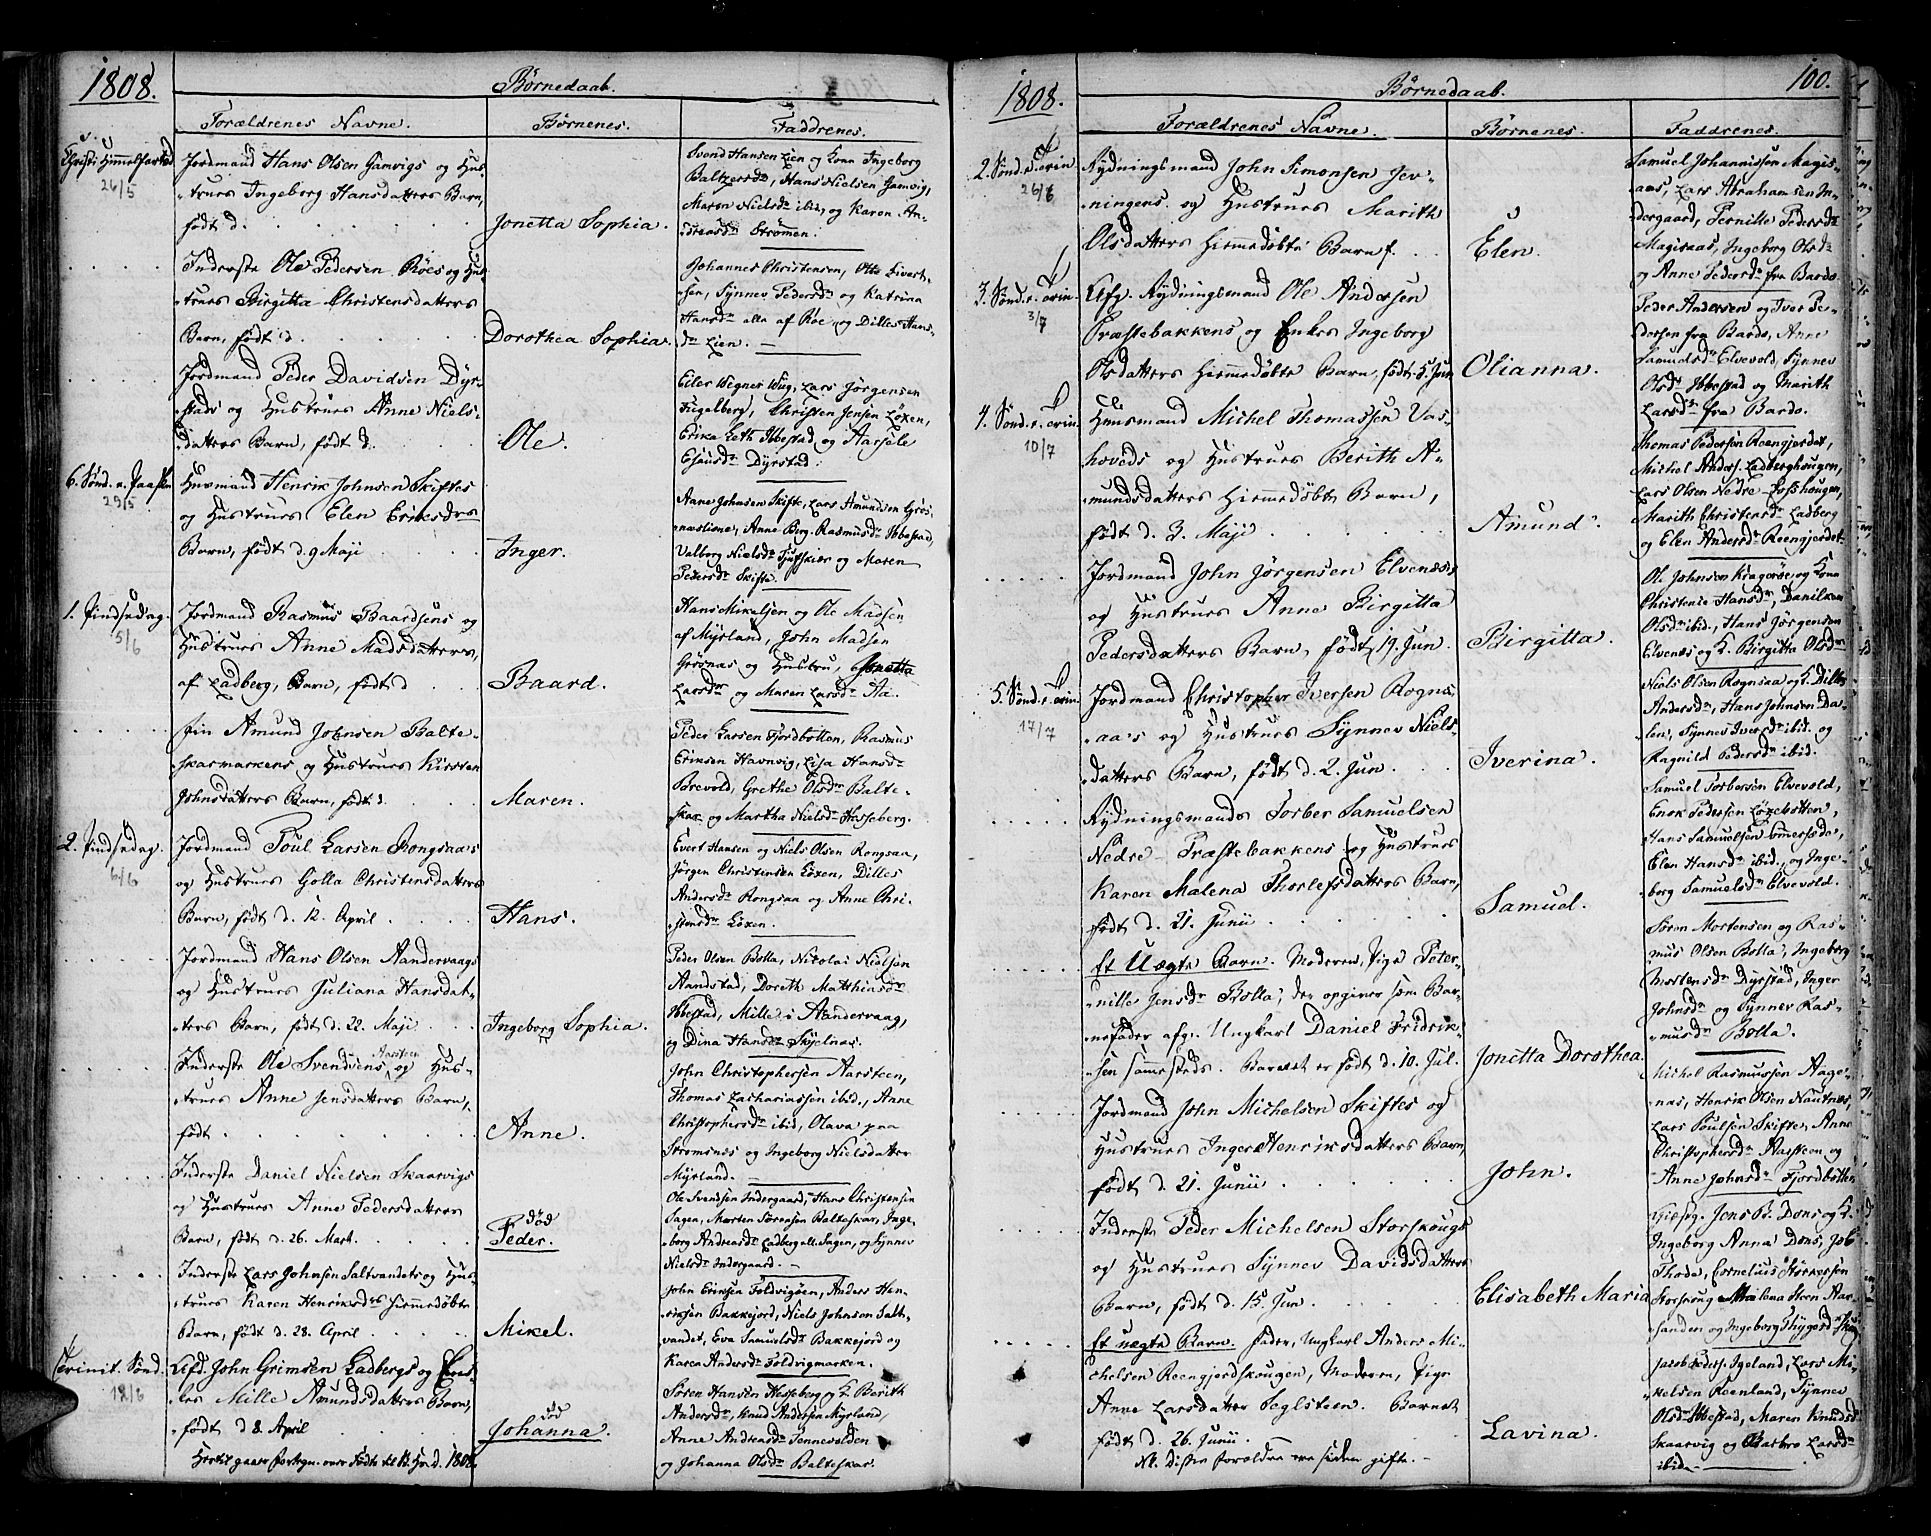 1808.
Børnedaab.
Forældrenes Navne.
Børnenes.
Faddrenes.
Christi Himmelfartsd
26/5
Jordmand Hans Olsen Gamvigs og Hus-
trues Ingeborg Hansdatters Barn,
født d.
Jonetta Sophia.
Svend Hansen Lien og Kona Ingeborg
Baltzersdr, Hans Nielsen Gamvig,
Maren Nielsdr ibid, og Karen An-
dreasdr Strømen.
Inderste Ole Pedersen Röes og Hus-
trues Birgitta Christensdatters
Barn, født d.
Dorothea Sophia.
Johannes Christensen, Ole Sivert-
sen, Synnev Pedersdr og Katrina
Hansdr alle af Röe, og Dilles Hans-
dr Lien.
Jordmand Peder Davidsen Dyr-
stads og Hustrues Anne Niels-
datters Barn, født d.
Ole.
Eiler Wegner Wug, Lars Jörgensen
Fugelberg, Christen Jensen Löxen,
Erika Leth Ibbestad og
Esaiasdr Dyrstad.
6. Sønd. e. Paaske
29/5
Huusmand Henrik Johnsen Skiftes
og Hustrues Elen Eriksdrs
Barn, født d. 9 Maji
Inger.
Aane Johnsen Skifte, Lars Amundsen Grös-
næslione, Anne Berg. Rasmusdr Ibbestad,
Valborg Nielsdr og Maren
Pedersdr Skifte.
1. Pindsedag.
5/6
Jordmand Rasmus Baardsens og
Hustrues Anne Madsdatters,
af Ladberg, Barn, født d
Baard.
Hans Mikelsen og Ole Madsen
af Myrland, John Madsen
Grösnas og Hustru, Jonetta
Larsdr og Maren Larsdr Aa.
Fin Amund Johnsen Balte-
skarmarkens og Hustrues Kirsten
Johnsdatters Barn, født d.
Maren.
Peder Larsen Fjordbotten, Rasmus
Eriksen Havnvig, Lisa Hansdr
Brevold, Grethe Olsdr Balte-
skar og Martha Nielsdr Hasseberg.
2. Pindsedag.
6/6
Jordmand Poul Larsen Rongsaa's
og Hustrues Golla Christensdatters
Barn, født d. 12. April
Hans.
Evert Hansen og Niels Olsen Rongsaa,
Jörgen Christensen Löxen, Dilles
Andersdr Rongsaa og Anne Chri-
stensdr Löxen.
Jordmand Hans Olsen Aandervaags
og Hustrues Juliana Hansdat-
ters Barn, født d. 22. Maji
Ingeborg Sophia.
Peder Olsen Bolla, Nicolai Nielsen
Aandstad, Doreth Matthiasdr
Ibbestad, Mille i Aandervaag,
og Dina Hansdr Skjelnas.
Inderste Ole Svendsens Aarsteen og Hus-
trues Anne Jensdatters Barn,
født
Anne.
John Christophersen Aarsteen,
Thomas Zachariassen ibid., Anne
Christophersdr ibid, Olava paa
Strømsnæs og Ingeborg Nielsdatter
Myrland.
Inderste Daniel Nielsen Skaarvigs
og Hustrues Anne Pedersdatters
Barn, født d. 26. Mart.
død
Peder.
Ole Svendsen Indergaard, Hans Christensen
Sagen, Morten Sörensen Balteskar, Inge-
borg Andreasdr Ladberg ell. Sagen, og Synnev
Nielsdr Indergaard.
Inderste Lars Johnsen Saltvandets og Hus-
trues Karen Henriksdrs hiemmedöbte
Barn, født d. 28. April
Mikel.
John Eriksen Foldvigöen, Anders Hen-
riksen Bakkejord, Niels Johnsen Salt-
vandet, Eva Samuelsdr Bakkejord og
Karen Andersdr Foldvigmarken.
Trinit. Sönd.
12/6
Afd. John Grimsen Ladbergs og Enk-
es Mille Amundsdatters Barn,
født d 8. April
død
Johanna.
Sören Hansen Hesseberg og K. Berith
Andersdr, Knud Andersen Myrland,
Anne Andreasdr Tennevolden
og Johanna Olsdr Balteskar.
Hertil gaaer fortegn. over Fødte til 1808.
1808.
Børnedaab.
100.
Forældrenes Navne.
Børnenes.
Faddrenes.
2. Sønd. e. Trin.
26/6
Rydningsmand John Simonsen Jev-
ningens og Hustrues Marith
Olsdatters hiemmedøbte Barn f.
Elen.
Samuel Johannissen Magis-
aas, Lars Abrahamsen In-
dergaard, Pernille Pedersdr
Magisaas, Ingeborg Olsdr
og Anne Pedersdr fra Bardo
3. Sønd. e. Trin.
3/7
Afg. Rydningsmand Ole Andersen
Præstebakkens og Enkes Ingeborg
Olsdatters hiemmedøbte Barn, født 5. Jun
Olianna.
Peder Andersen og Iver Pe-
dersen fra Bardo, Anne
Samuelsdr Elvevold, Synnev
Olsdr Ibbestad og Marith
Larsdr fra Bardo.
4. Sønd. e. Trin.
10/7
Huusmand Michel Thomassen Vas-
hoveds og Hustrues Berith A-
mundsdatters hiemmedøbte Barn,
født d. 3. Maji
Amund.
Thomas Pedersen Reengjerdet,
Michel Anders. Ladberghougen,
Lars Olsen Nedre-Fosshougen,
Marith Christensdr Ladberg
og Elen Andersdr Reengjerdet.
Jordmand John Jörgensen Elvenæs's
og Hustrues Anne Birgitta
Pedersdatters Barn, født 19. Jun
Birgitta.
Ole Johnsen Kragerøe og Kona
Christenie Hansdr, Danilken
Olsdr ibid., Hans Jörgensen
Elvenæs og K. Birgitta Olsdr
5. Sønd. e. Trin.
17/7
Jordmand Christopher Iversen Rogns-
aa's og Hustrues Synnev Niels-
datters Barn, født d. 2. Jun.
Iverina.
Niels Olsen Rognsaa og K. Dilles
Andersdr, Hans Johnsen Da-
len, Synnev Iversdr ibid. og
Ragnild Pedersdr ibid.
Rydningsmands Torber Samuelsen
Nedre-Præstebakkens og Hustrues
Karen Malena Thorlefsdatters Barn,
født d. 21. Junii
Samuel.
Samuel Torbersen Elvevold,
Enok Pedersen Löxebotten,
Hans Samuelsen Sommersede,
Elen Hansdr ibid., og Inge-
borg Samuelsdr Elvevold.
Et Uægte Barn. Moderen, Pige Peter-
nille Jensdr Bolla, der opgiver som Bar-
nefader afg. Ungkarl Daniel Fridrik-
sen sammesteds. Barnet er født d. 10. Jul.
Jonetta Dorothea.
Sören Mortensen og Ras-
mus Olsen Bolla, Ingeborg
Mortensdr Dyrstad, Inger
Johnsdr og Synnev Ras-
musdr Bolla.
Jordmand John Michelsen Skiftes og
Hustrues Inger Henriksdatters Barn,
født d. 21. Junii
John.
Michel Rasmussen Aage-
nas, Henrik Olsen Nautnæs,
Lars Poulsen Skifte, Anne
Christophersdr Aarsteen og
Anne Johnsdr Fjordbotten
Inderste Peder Michelsen Storskougs
og Hustrues Synnev Davidsdatters
Barn, født d. 15. Jun.
Elisabeth Maria
Giæstg. Jens Dons og K.
Ingeborg Anna Dons, Job
Thode, Cornelius Störkersen
Storskoug, Malena Steen Aar-
sanden og Ingeborg Thygesdr
Et uægte Barn. Fader, Ungkarl Anders Mi-
chelsen Reengjerdskougen, Moderen, Pige
Anne Larsdatter Seglsteen. Barnet
født d. 26. Junii.
Lavina.
Jacob Peders. Ygeland, Lars Mi-
kelsen Reenland, Synnev
Olsdr Ibbestad, Maren Knudsd
Skaarvig og Barbro Larsdr
ibid.
Nb. Disse forældre ere siden gifte.